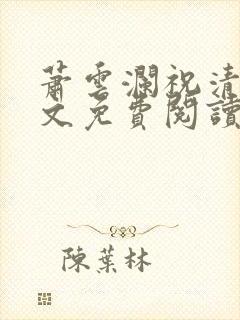 蕭雲瀾祝清
文免費閱讀
陳葉林